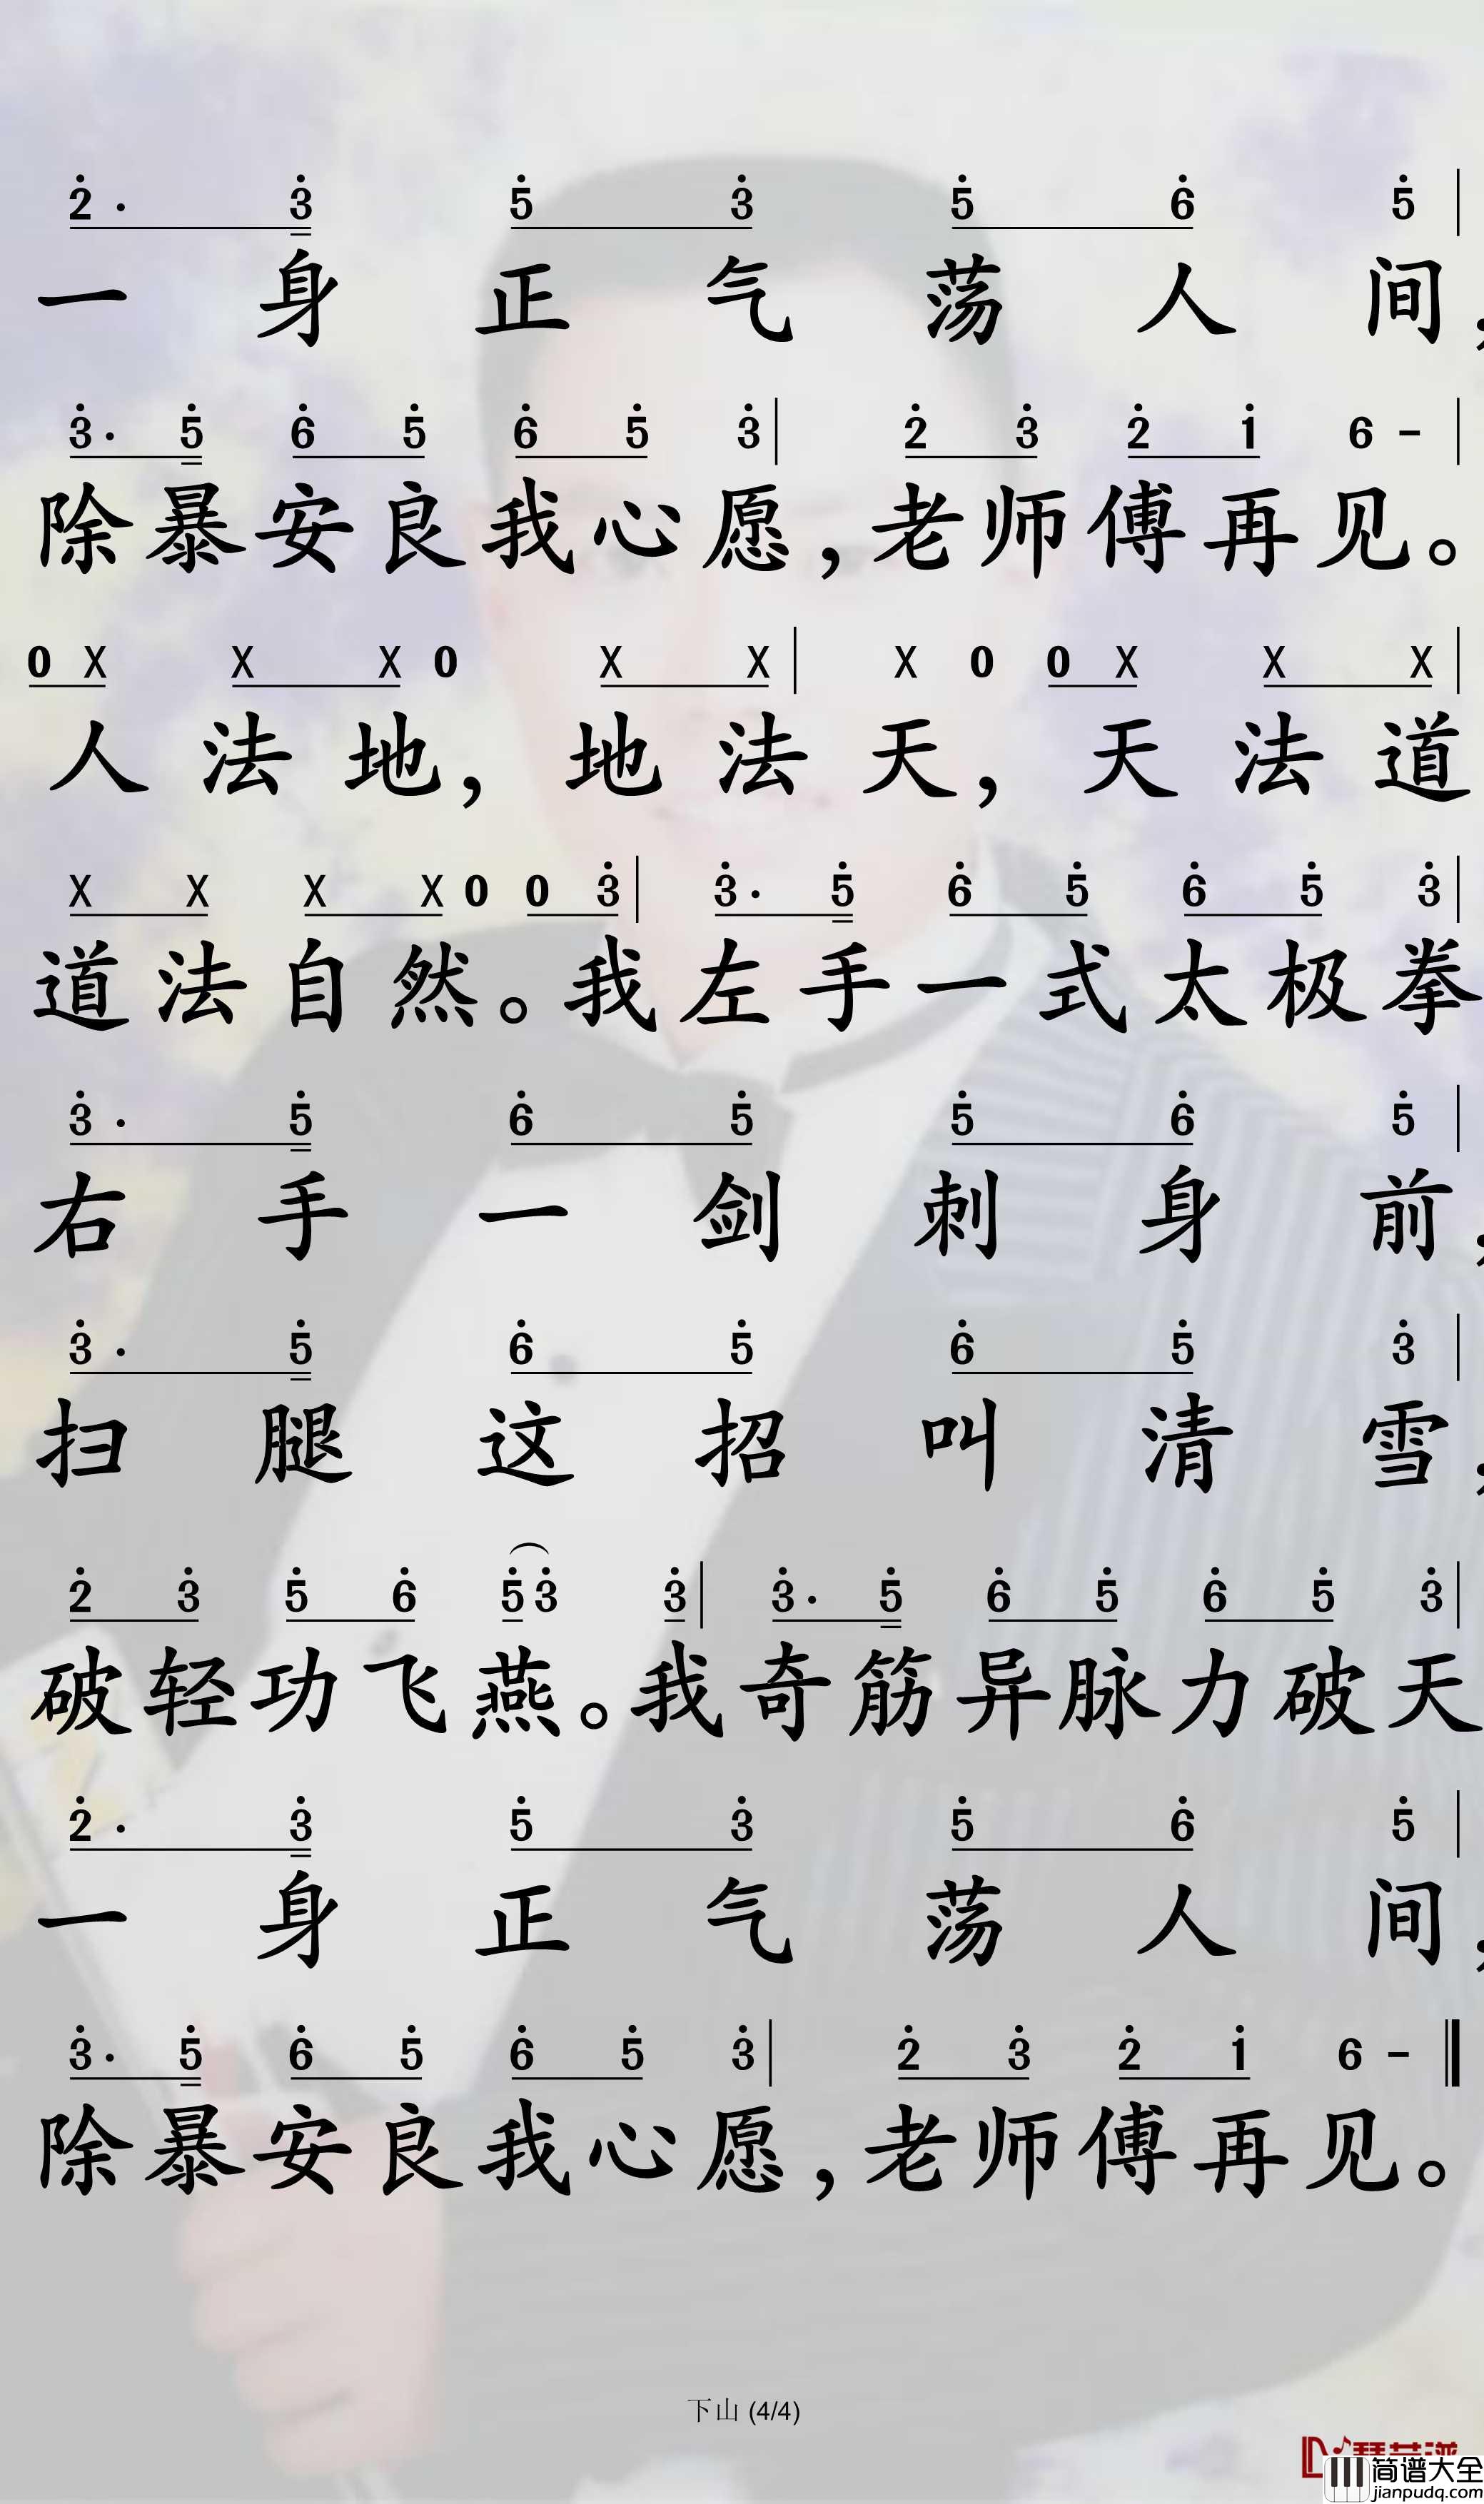 2· 3 5 3 5 6 5 |
一身正气荡人间，
3· 5 6 5 6 5 3 | 2 3 2 1 6 - |
除暴安良我心愿，老师傅再见。
0 X X X 0 X X | X 0 0 X X X |
人法地，地法天，天法道
X X X X 0 0 3 | 3· 5 6 5 6 5 3 |
道法自然。我左手一式太极拳
3· 5 6 5 5 6 5 |
右手一剑刺身前，
3· 5 6 5 6 5 3 |
扫腿这招叫清雪，
2 3 5 6 5 3 3 | 3· 5 6 5 6 5 3 |
破轻功飞燕。我奇筋异脉力破天
2· 3 5 3 5 6 5 |
一身正气荡人间，
3· 5 6 5 6 5 3 | 2 3 2 1 6 - ‖
除暴安良我心愿，老师傅再见。
下山 (4/4)
简谱大全
jianpudq.com